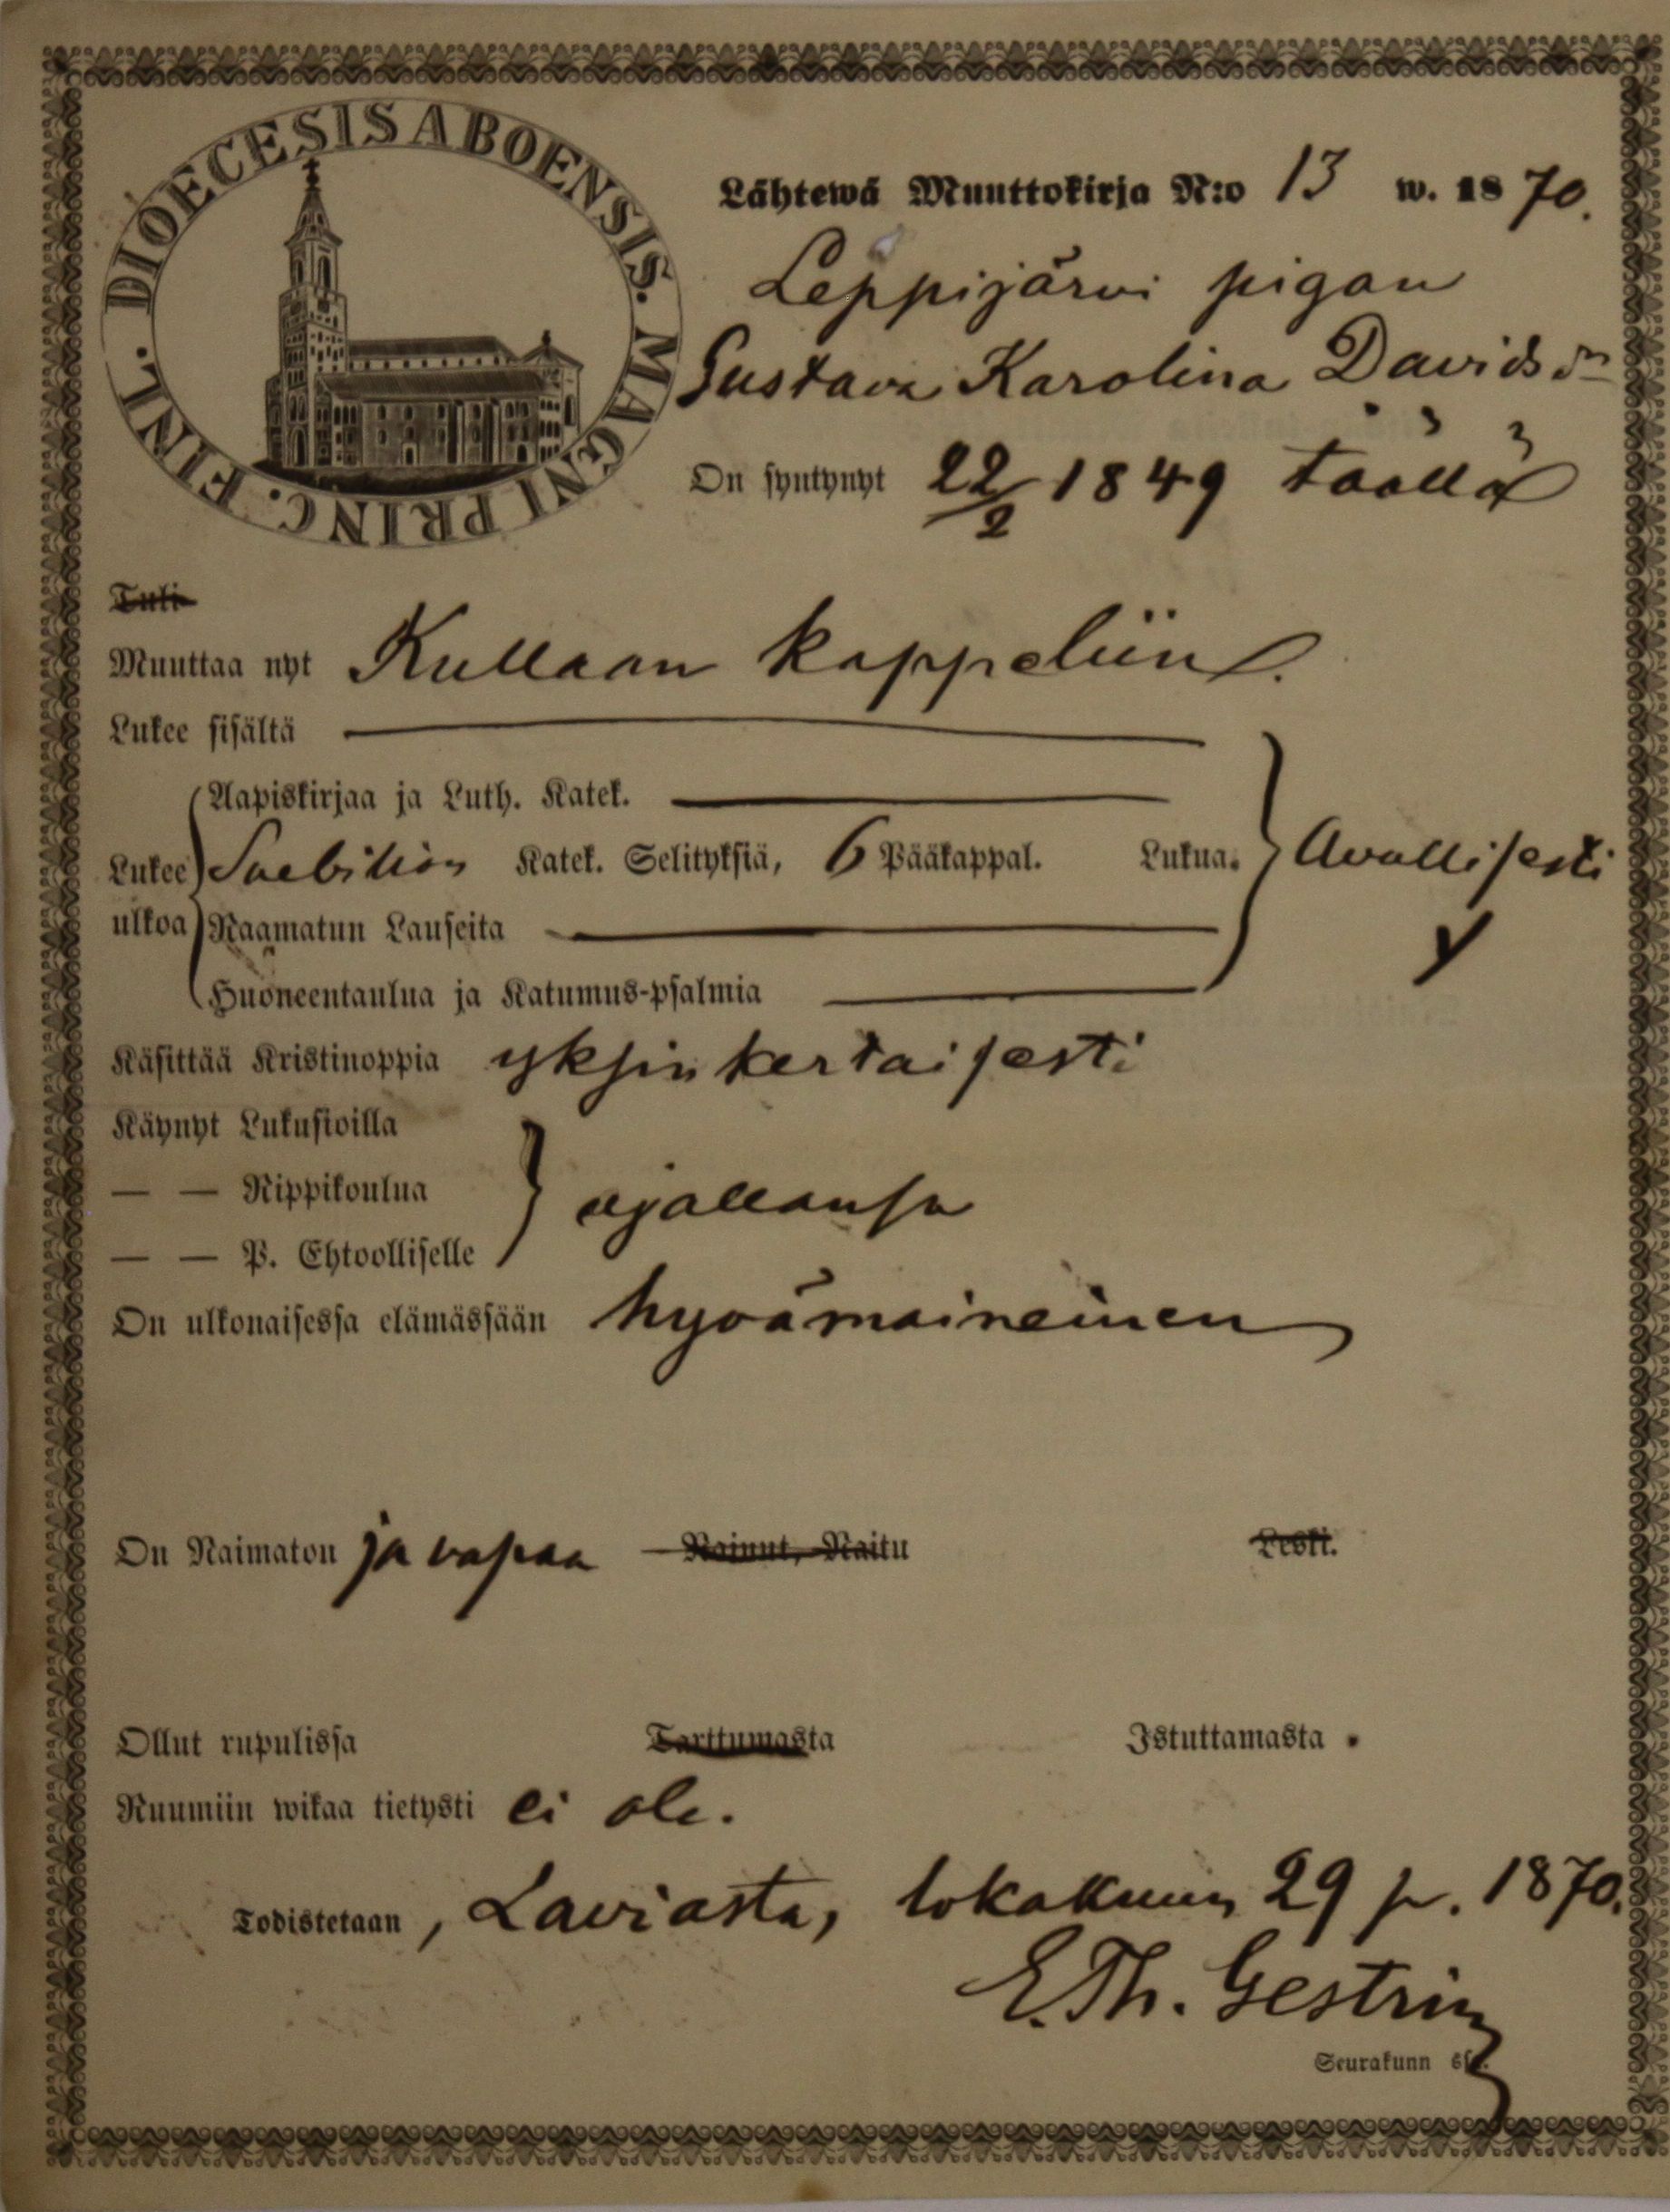 DIOECESIS ABOENSIS. MAGNI PRINC. FINL.
Lähtewä Muuttokirja N:o 13 w. 1870.
Leppijärvi pigan
Gustava Karolina Davidsdr
On syntynyt 22/2 1849 täällä
Tuli
Muuttaa nyt Kullaan kappeliin.
Lukee sisältä
Aapiskirjaa ja Luth. Katek.
Lukee Svebilion Katek. Selityksiä, 6 Pääkappal. Lukua. Avullisesti
ulkoa Raamatun Lauseita
Huoneentaulua ja Katumus-psalmia
Käsittää Kristinoppia yksinkertaisesti
Käynyt Lukusioilla
— — Rippikoulua ajallansa
— — P. Ehtoolliselle
On ulkonaisessa elämässään hyvämaineinen
On Naimaton ja vapaa Nainut, Naitu Leski.
Ollut rupulissa Tarttumasta Istuttamasta .
Ruumiin wikaa tietysti ei ole.
Todistetaan, Laviasta, lokakuun 29 p. 1870.
E. Th. Gestrin
Seurakunn